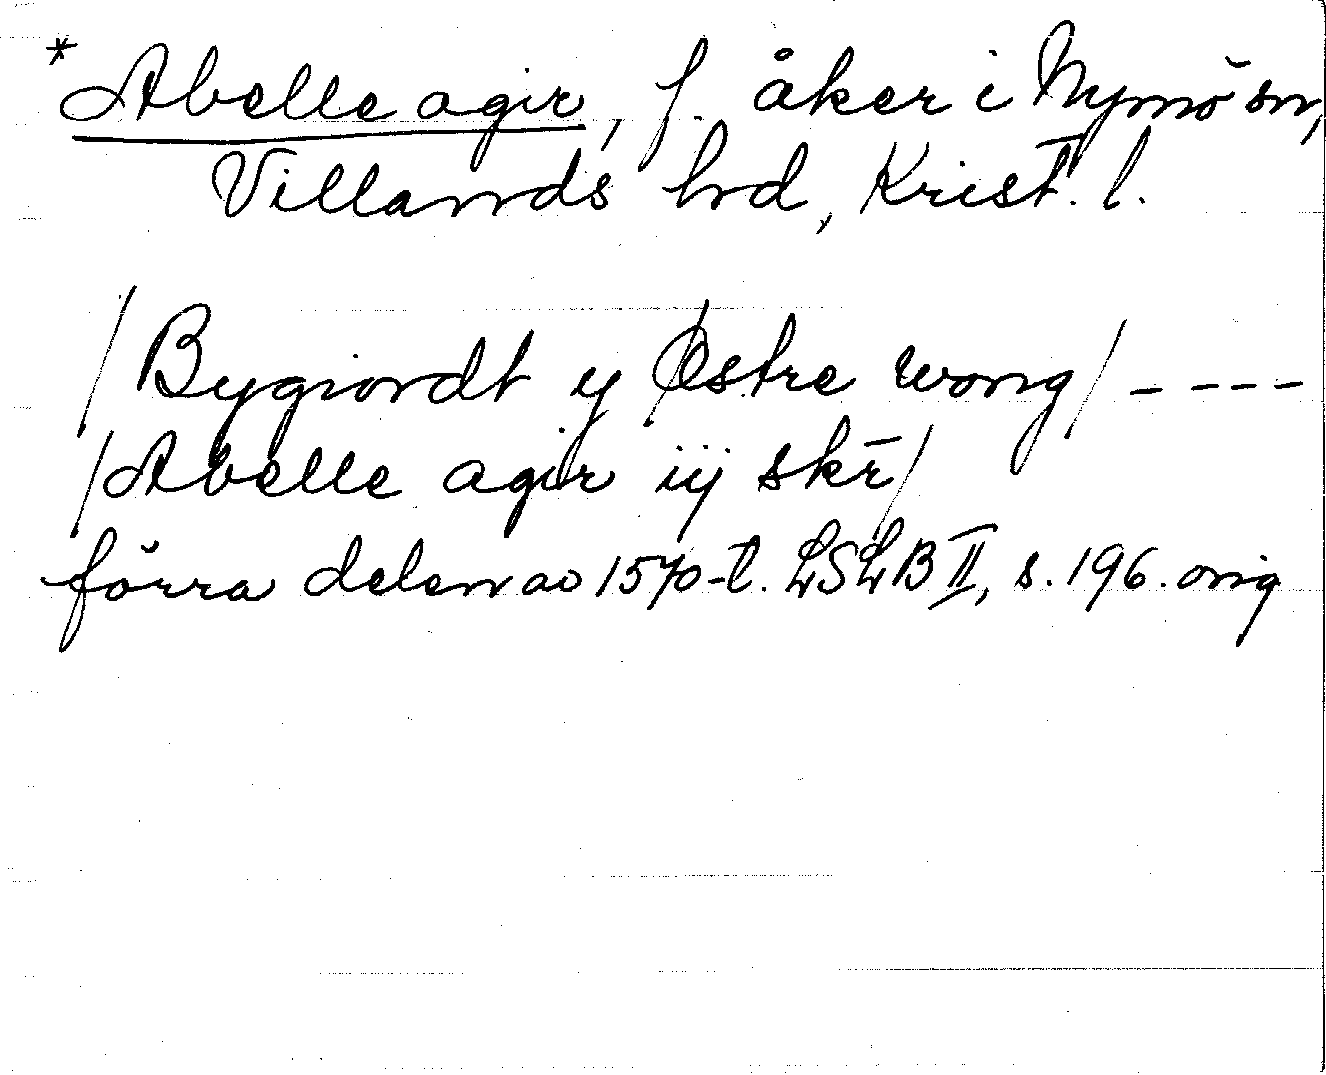 * Abelle agir, f. åker i Nymö sn,
Villands hd, Krist. l.
/Bygiordt y Østre wong/ - - - -
/Abelle agir iij skr̄/
förra delen av 1570-t. LSLB II, s. 196. orig